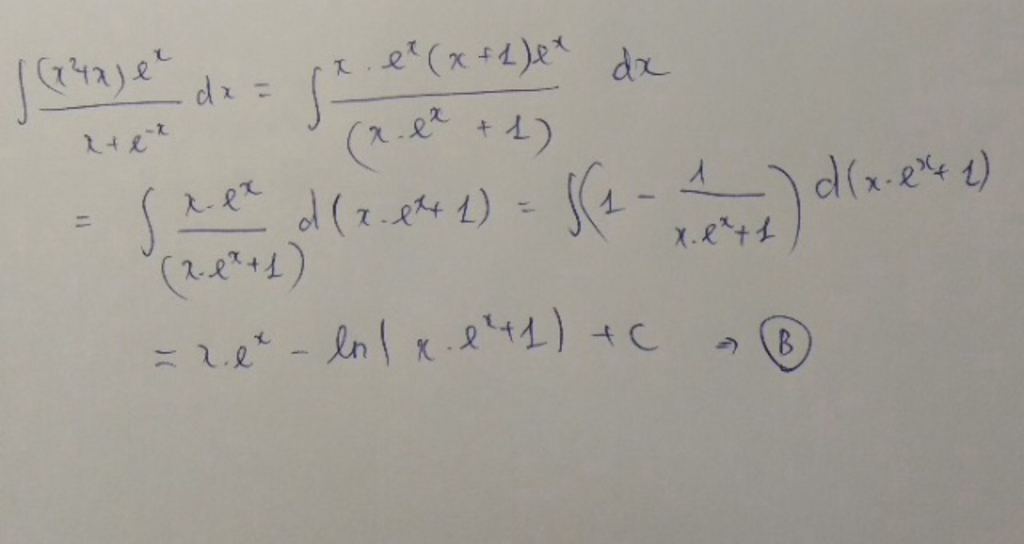 ∫ (x²+x)eˣ / x+e⁻ˣ dx = ∫ x.eˣ(x+1)eˣ / (x.eˣ+1) dx
= ∫ x.eˣ / (x.eˣ+1) d(x.eˣ+1) = ∫(1 - 1 / x.eˣ+1) d(x.eˣ+1)
= x.eˣ - ln| x.eˣ+1) + C ⇒ B